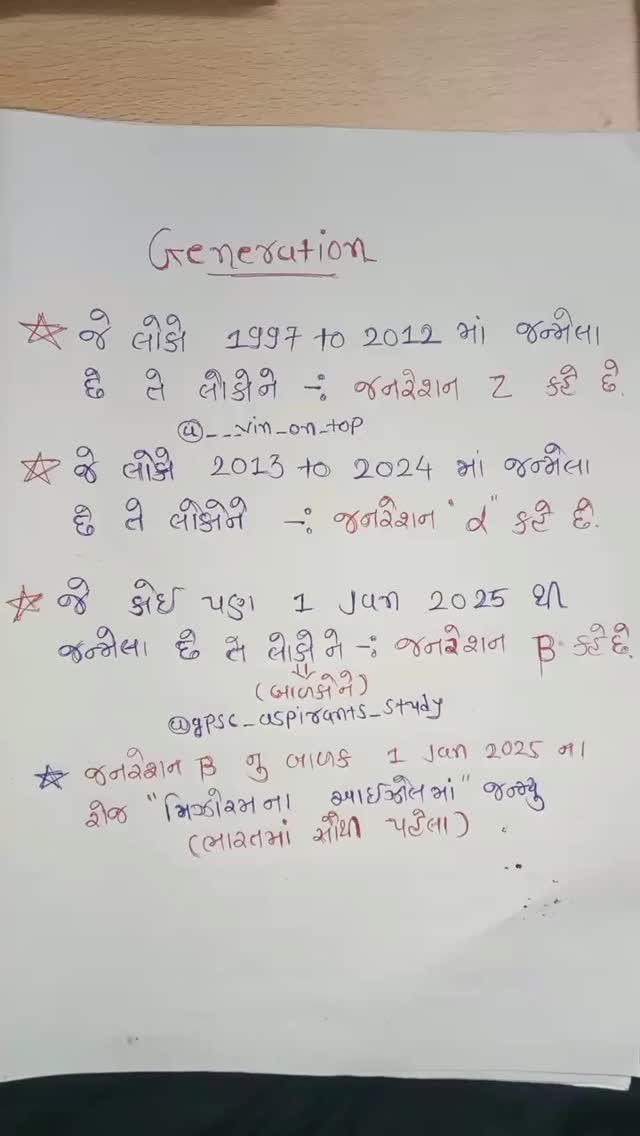 Generation
જે લોકો 1997 to 2012 માં જન્મેલા
છે તે લોકોને -: જનરેશન Z કહે છે.
@_--vin_on_top
જે લોકો 2013 to 2024 માં જન્મેલા
છે તે લોકોને -: જનરેશન "α" કહે છે.
જે કોઇ પણ 1 Jan 2025 થી
જન્મેલા છે તે લોકોને -: જનરેશન β કહે છે.
(બાળકોને)
@gpsc_aspirants_study
જનરેશન β નુ બાળક 1 Jan 2025 ના
રોજ "મિઝોરમના આઇઝોલમાં" જન્મ્યુ
(ભારતમાં સૌથી પહેલા)